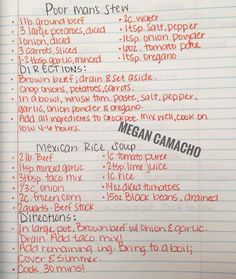 Poor man's Stew
• 1 lb. ground beef
• 3 large potatoes, diced
• 1 onion, diced
• 3 carrots, sliced
• 1-2 tbsp garlic, minced
• 2c. water
• 1 tsp. salt, pepper
• 1 tsp. onion powder
• 6oz. tomato paste
• 1 tsp. oregano
DIRECTIONS:
Brown beef; drain & set aside.
Chop onions, potatoes, carrots.
In a bowl, whisk tom. paste, salt, pepper, garlic, onion powder & oregano.
Add all ingredients to crockpot. mix well, cook on low 4-6 hours.
MEGAN CAMACHO
Mexican Rice Soup
• 2 lb. Beef
• 1 tsp minced garlic
• 3 tbsp taco mix
• 1/3c. onion
• 2c. frozen corn
• 2 quarts. Beef Stock
• 1c tomato puree
• 2 tsp. lime juice
• 1c rice
• 14oz diced tomatoes
• 15oz Black beans, drained
Directions:
In large pot, Brown beef w/ onion & garlic.
Drain. Add taco mix!
Add remaining ing. Bring to a boil;
Cover & Summer.
Cook 30 mins!